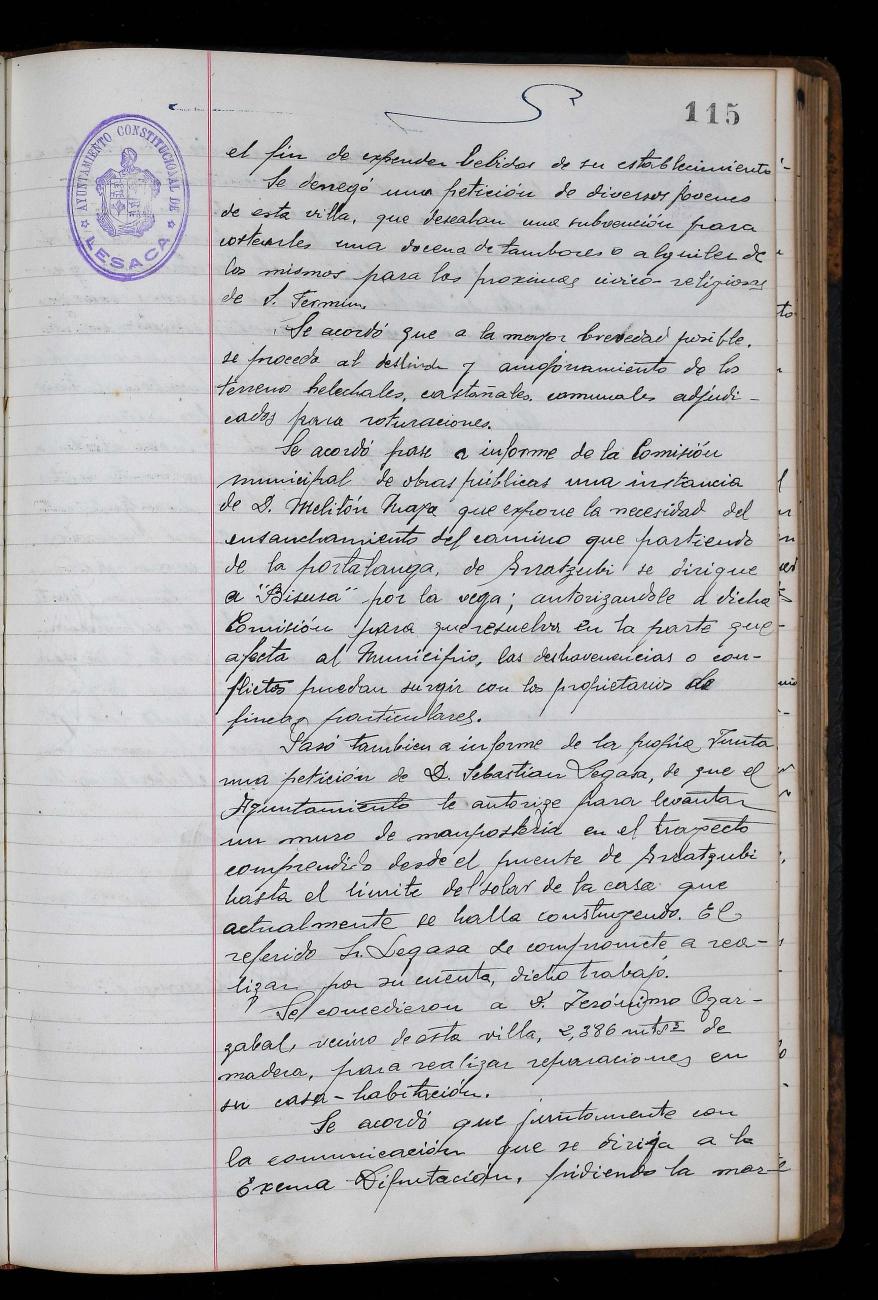 115
AYUNTAMIENTO CONSTITUCIONAL DE
LESACA
el fin de expender bebidas de su establecimiento
Se denegó una petición de diversos jovenes
de esta villa, que deseaban una subvención para
costearles una docena de tambores o alquiler de
los mismos para las proximas civico-religiosas
de S. Fermin.
Se acordó que a la mayor brevedad posible,
se proceda al deslinde y amojonamiento de los
terreno helechales, castañales, comunales adjudi-
cados para roturaciones.
Se acordó pase a informe de la Comisión
municipal de obras públicas una instancia
de D. Melitón Maya que expone la necesidad del
ensanchamiento del camino que partiendo
de la portalanga, de Erratzubi se dirigue
a "Bisusa" por la vega; autorizandole a dicha
Comisión para que resuelva en la parte que
afecta al Municipio, las deshavenencias o con-
flictos puedan surgir con los propietarios de
fincas particulares.
Pasó tambien a informe de la propia Junta
una petición de D. Sebastian Legasa, de que el
Ayuntamiento le autorize para levantar
un muro de manposteria en el trayecto
comprendido desde el puente de Erratzubi
hasta el límite del solar de la casa que
actualmente se halla construyendo. El
referido Sr. Legasa se compromete a rea-
lizar por su cuenta, dicho trabajo.
Se concedieron a D. Jerónimo Ogar-
zabal, vecino de esta villa, 2,386 mts³ de
madera, para realizar reparaciones en
su casa-habitación.
Se acordó que juntamente con
la comunicación que se dirija a la
Excma Diputación, pidiendo la mar-